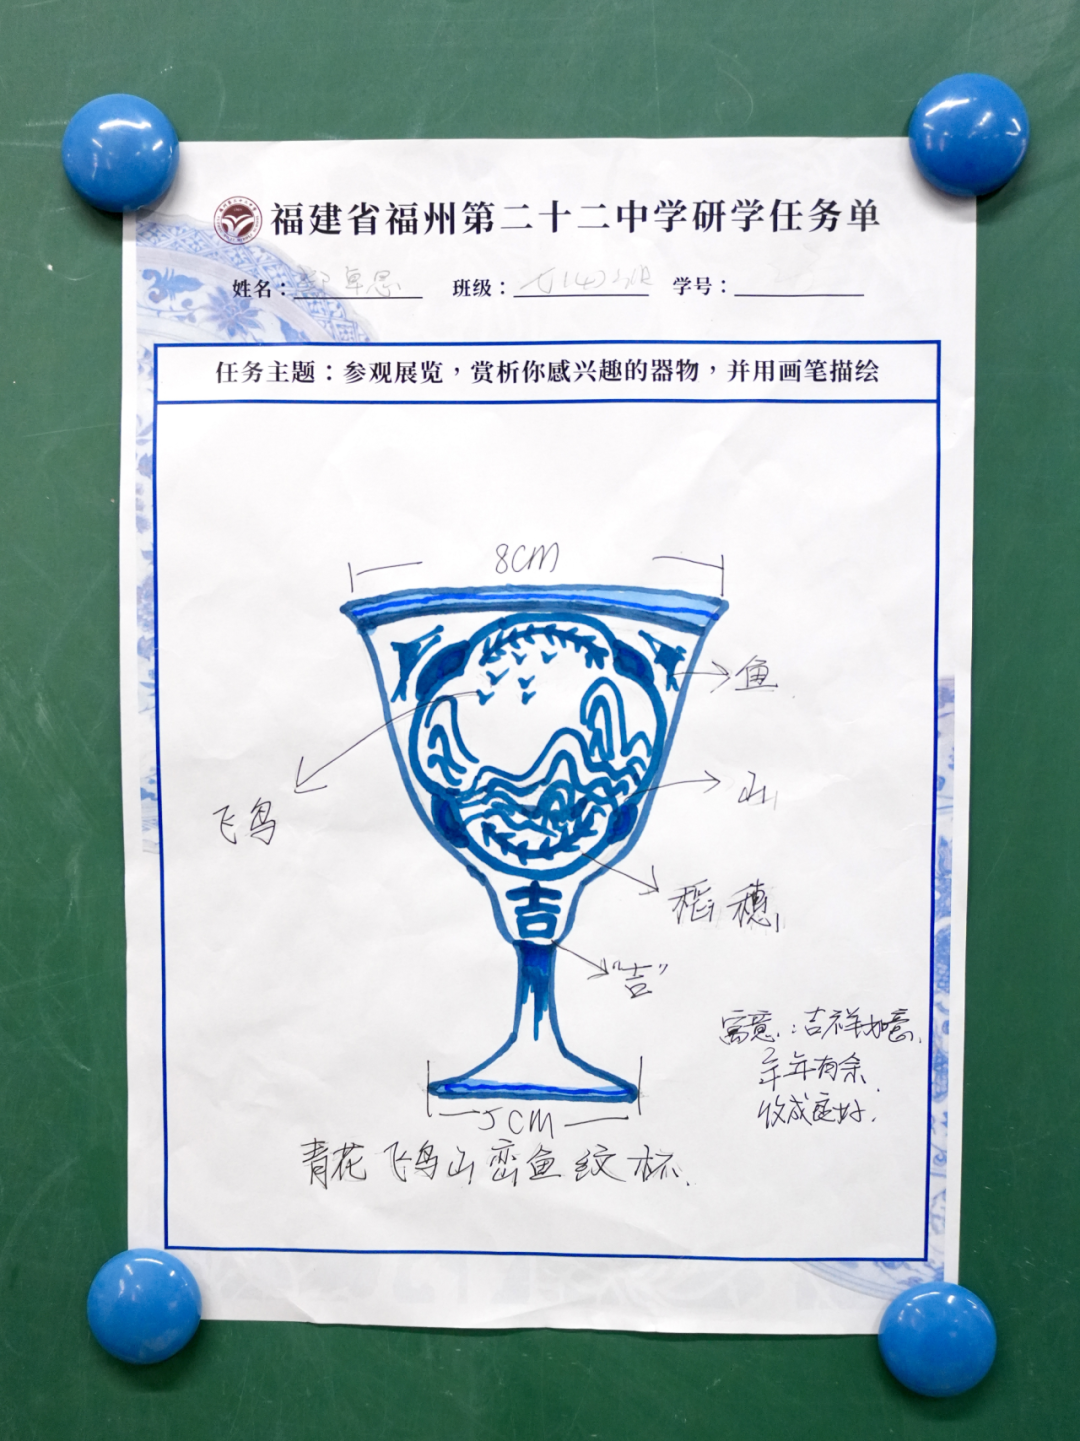 福建省福州第二十二中学研学任务单
姓名： 卓思 班级： 学号：
任务主题：参观展览，赏析你感兴趣的器物，并用画笔描绘
8CM
鱼
山
飞鸟
稻穗
吉
"吉"
寓意：吉祥如意
年年有余
收成良好.
5CM
青花飞鸟山峦鱼纹杯.